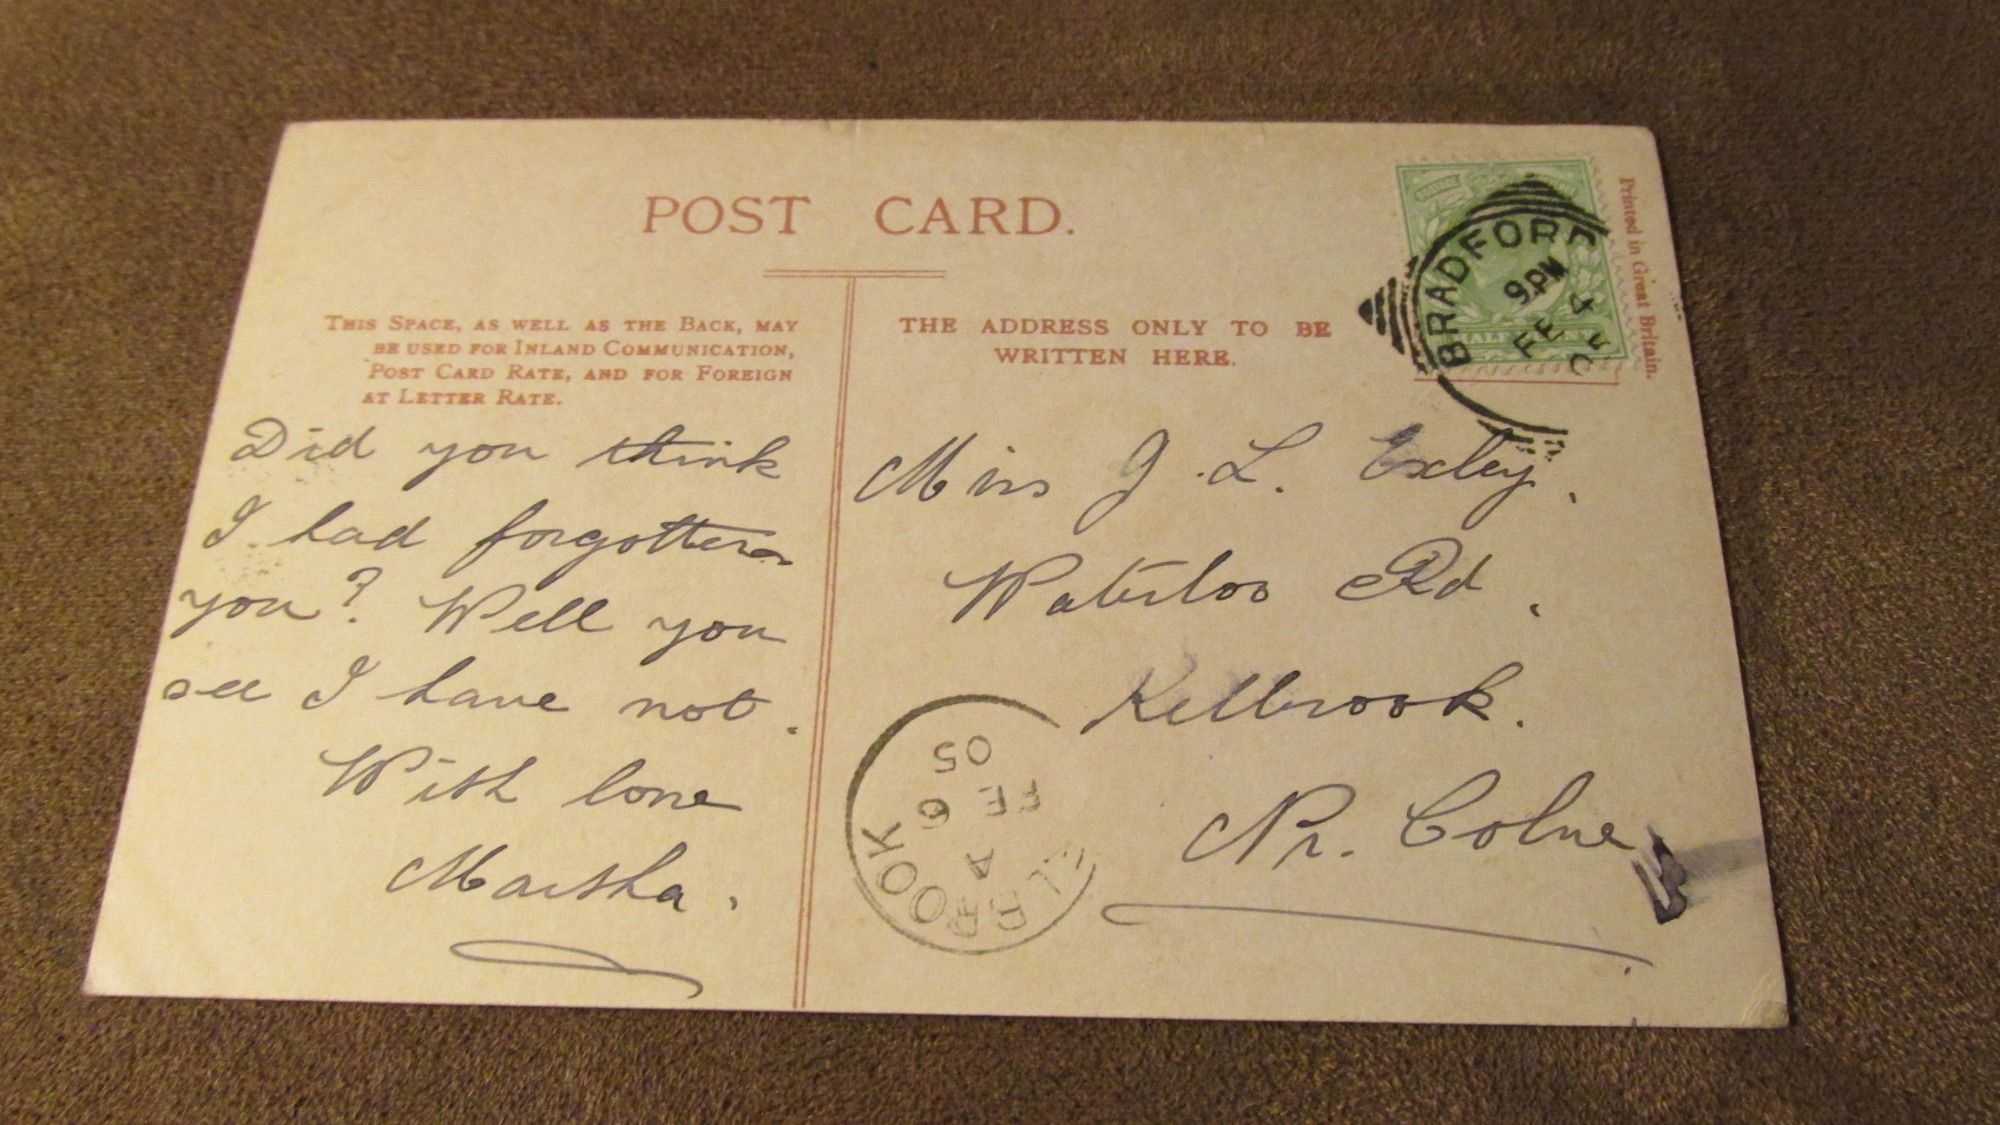 POST CARD.
Printed in Great Britain.
THIS SPACE, AS WELL AS THE BACK, MAY
BE USED FOR INLAND COMMUNICATION,
POST CARD RATE, AND FOR FOREIGN
AT LETTER RATE.
Did you think
I had forgotten
you? Well you
see I have not.
With love
Martha.
THE ADDRESS ONLY TO BE
WRITTEN HERE.
BRADFORD
9 PM
FE 4
05
Miss J. L. Exley.
Waterloo Rd.
Kelbrook.
Nr. Colne
ELBROOK
A
FE 6
05